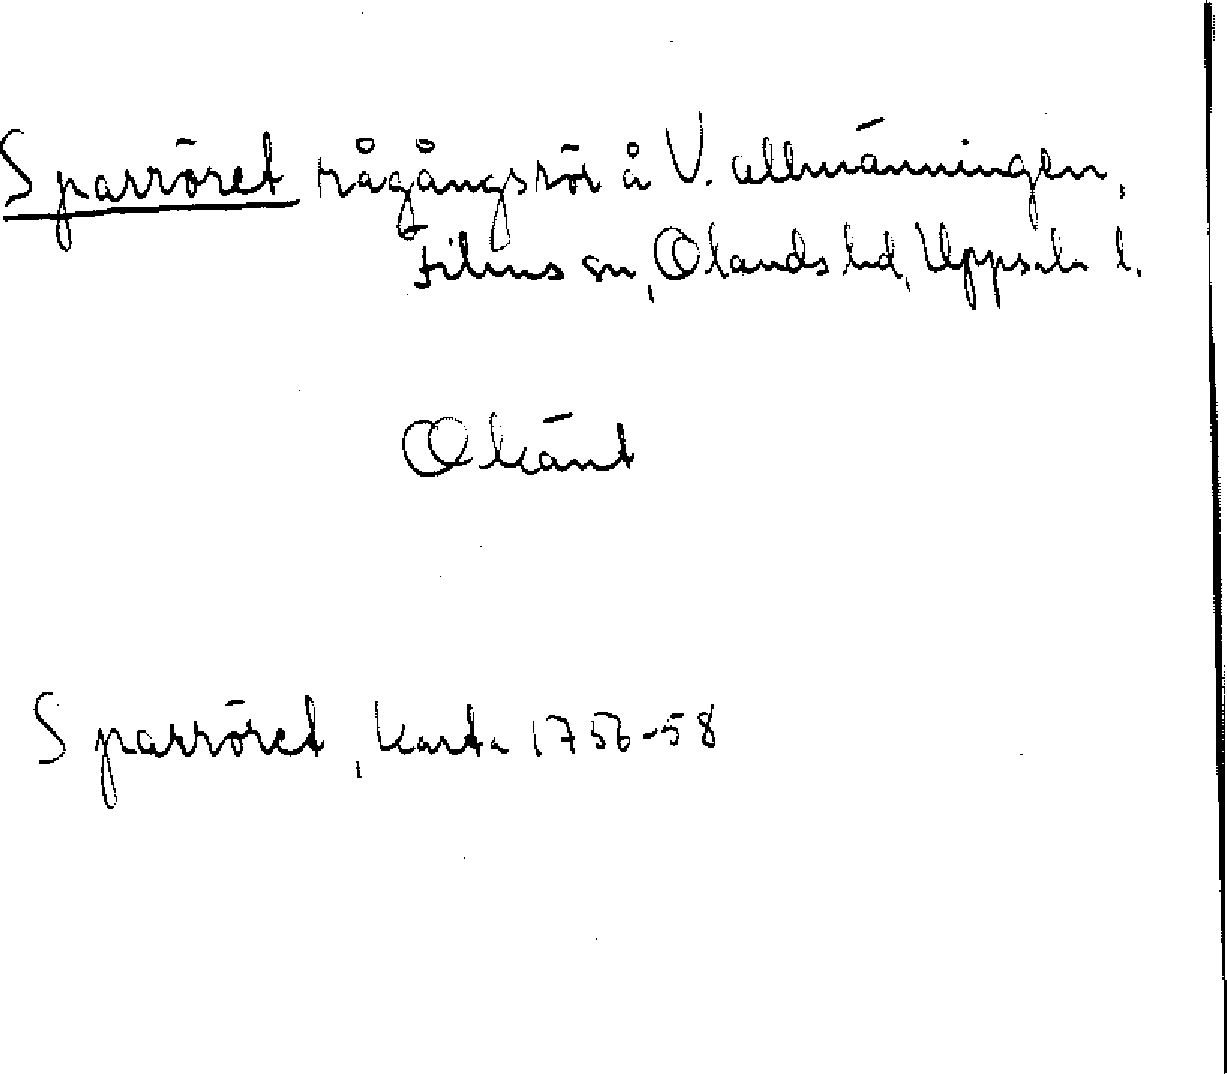 Sparröret rågångsrör å V. allmänningen,
Films sn, Olands hd, Uppsala l.
Okänt
Sparröret, karta 1756-58